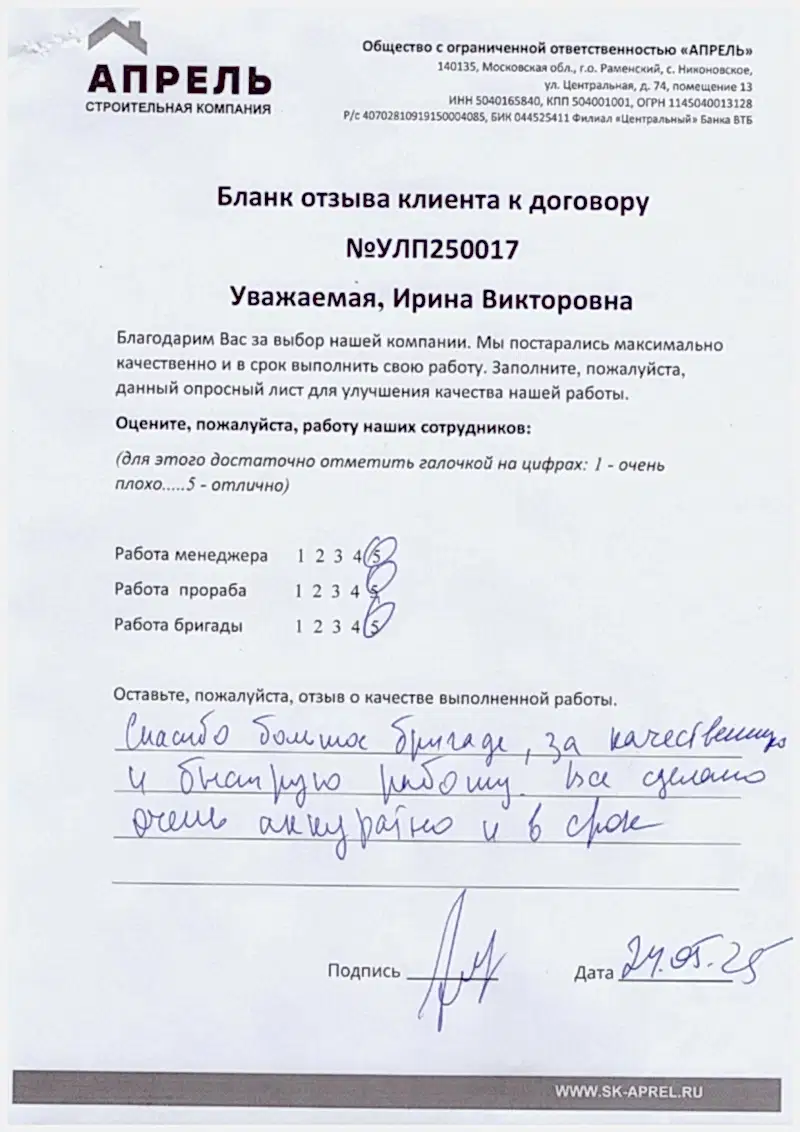 АПРЕЛЬ
СТРОИТЕЛЬНАЯ КОМПАНИЯ
Общество с ограниченной ответственностью «АПРЕЛЬ»
140135, Московская обл., г.о. Раменский, с. Никоновское,
ул. Центральная, д. 74, помещение 13
ИНН 5040165840, КПП 504001001, ОГРН 1145040013128
Р/с 40702810919150004085, БИК 044525411 Филиал «Центральный» Банка ВТБ
Бланк отзыва клиента к договору
№УЛП250017
Уважаемая, Ирина Викторовна
Благодарим Вас за выбор нашей компании. Мы постарались максимально
качественно и в срок выполнить свою работу. Заполните, пожалуйста,
данный опросный лист для улучшения качества нашей работы.
Оцените, пожалуйста, работу наших сотрудников:
(для этого достаточно отметить галочкой на цифрах: 1 - очень
плохо.....5 - отлично)
Работа менеджера 1 2 3 4 5
Работа прораба 1 2 3 4 5
Работа бригады 1 2 3 4 5
Оставьте, пожалуйста, отзыв о качестве выполненной работы.
Спасибо большое бригаде, за качественную
и быструю работу. Все сделано
очень аккуратно и в срок
Подпись
Дата 24.05.25
WWW.SK-APREL.RU